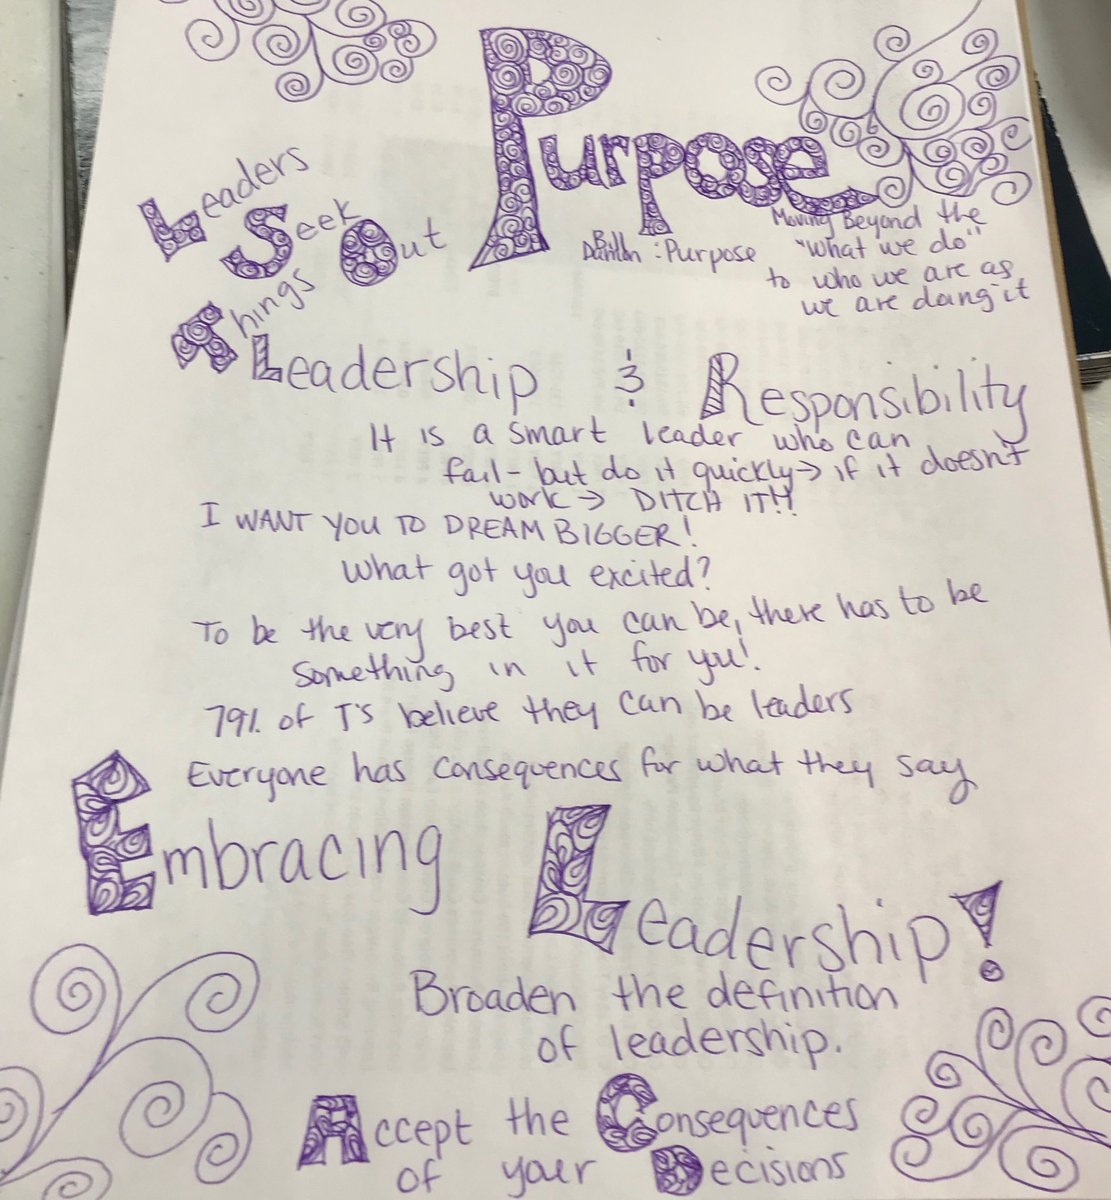 Purpose
Leaders
Seek
Out
Things
: Purpose
Moving Beyond the
"what we do"
to who we are as
we are doing it
Leadership & Responsibility
It is a smart leader who can
fail - but do it quickly → if it doesn't
work → DITCH IT!!
I WANT YOU TO DREAM BIGGER!
What got you excited?
To be the very best you can be, there has to be
something in it for you!
79% of T's believe they can be leaders
Everyone has consequences for what they say
Embracing Leadership!
Broaden the definition
of leadership.
Accept the Consequences
of your Decisions